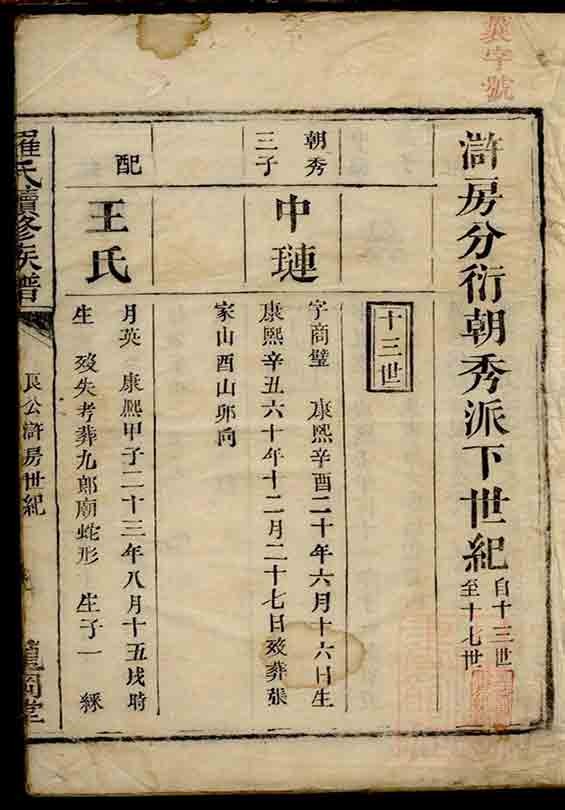 義字號
滸房分衍朝秀派下世紀
自十三世
至十七世
十三世
朝秀
三子
中璉
字商璧 康熙辛酉二十年六月十六日生
康熙辛丑六十年十二月二十七日歿葬張
家山酉山卯向
配
王氏
月英 康熙甲子二十三年八月十五戌時
生 歿失考葬九郎廟蛇形 生子一 綵
羅氏續修族譜
良公滸房世紀